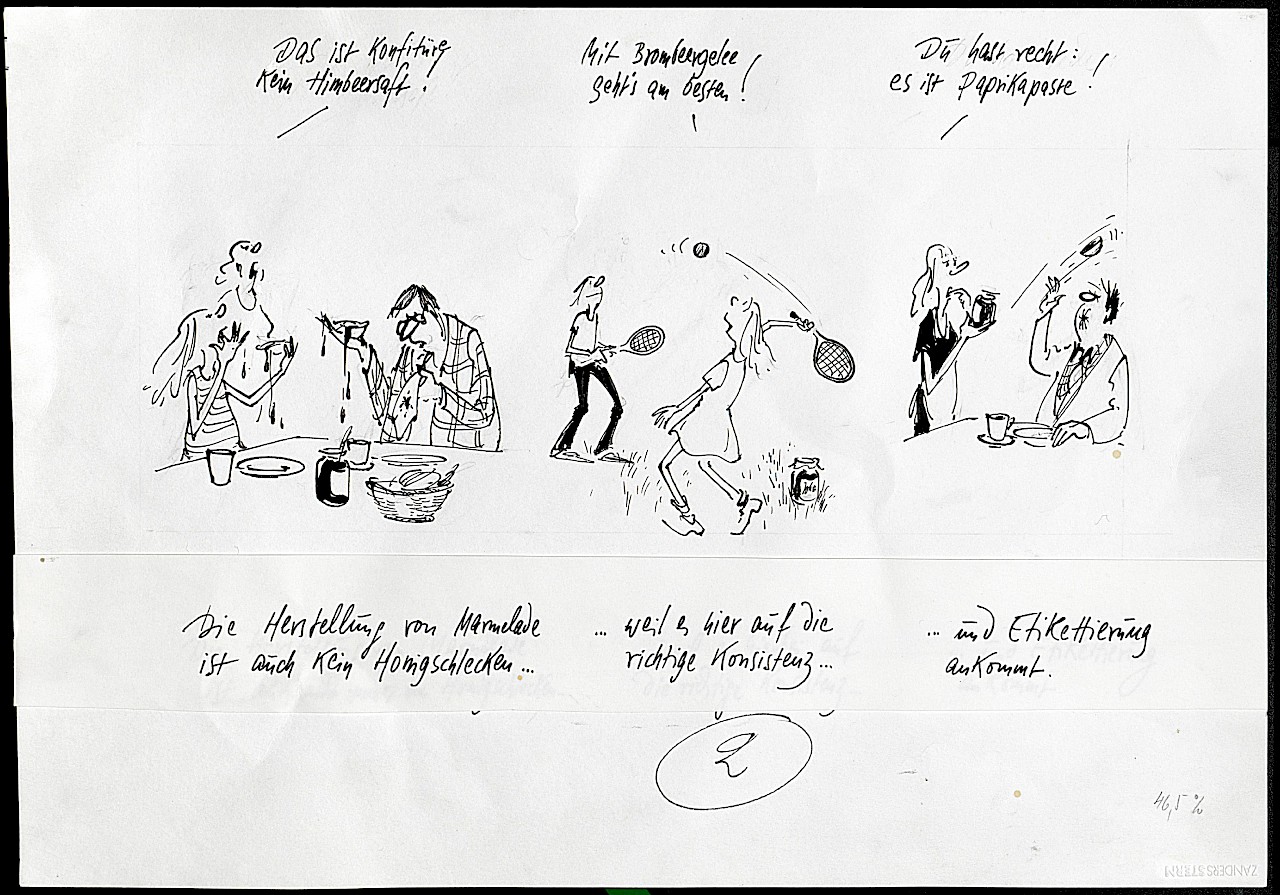 Das ist Konfitüre
kein Himbeersaft!
Mit Brombeergelee
geht's am besten!
Du hast recht:
es ist Paprikapaste!
Die Herstellung von Marmelade
ist auch kein Honigschlecken...
... weil es hier auf die
richtige Konsistenz...
... und Etikettierung
ankommt.
2
46,5 %